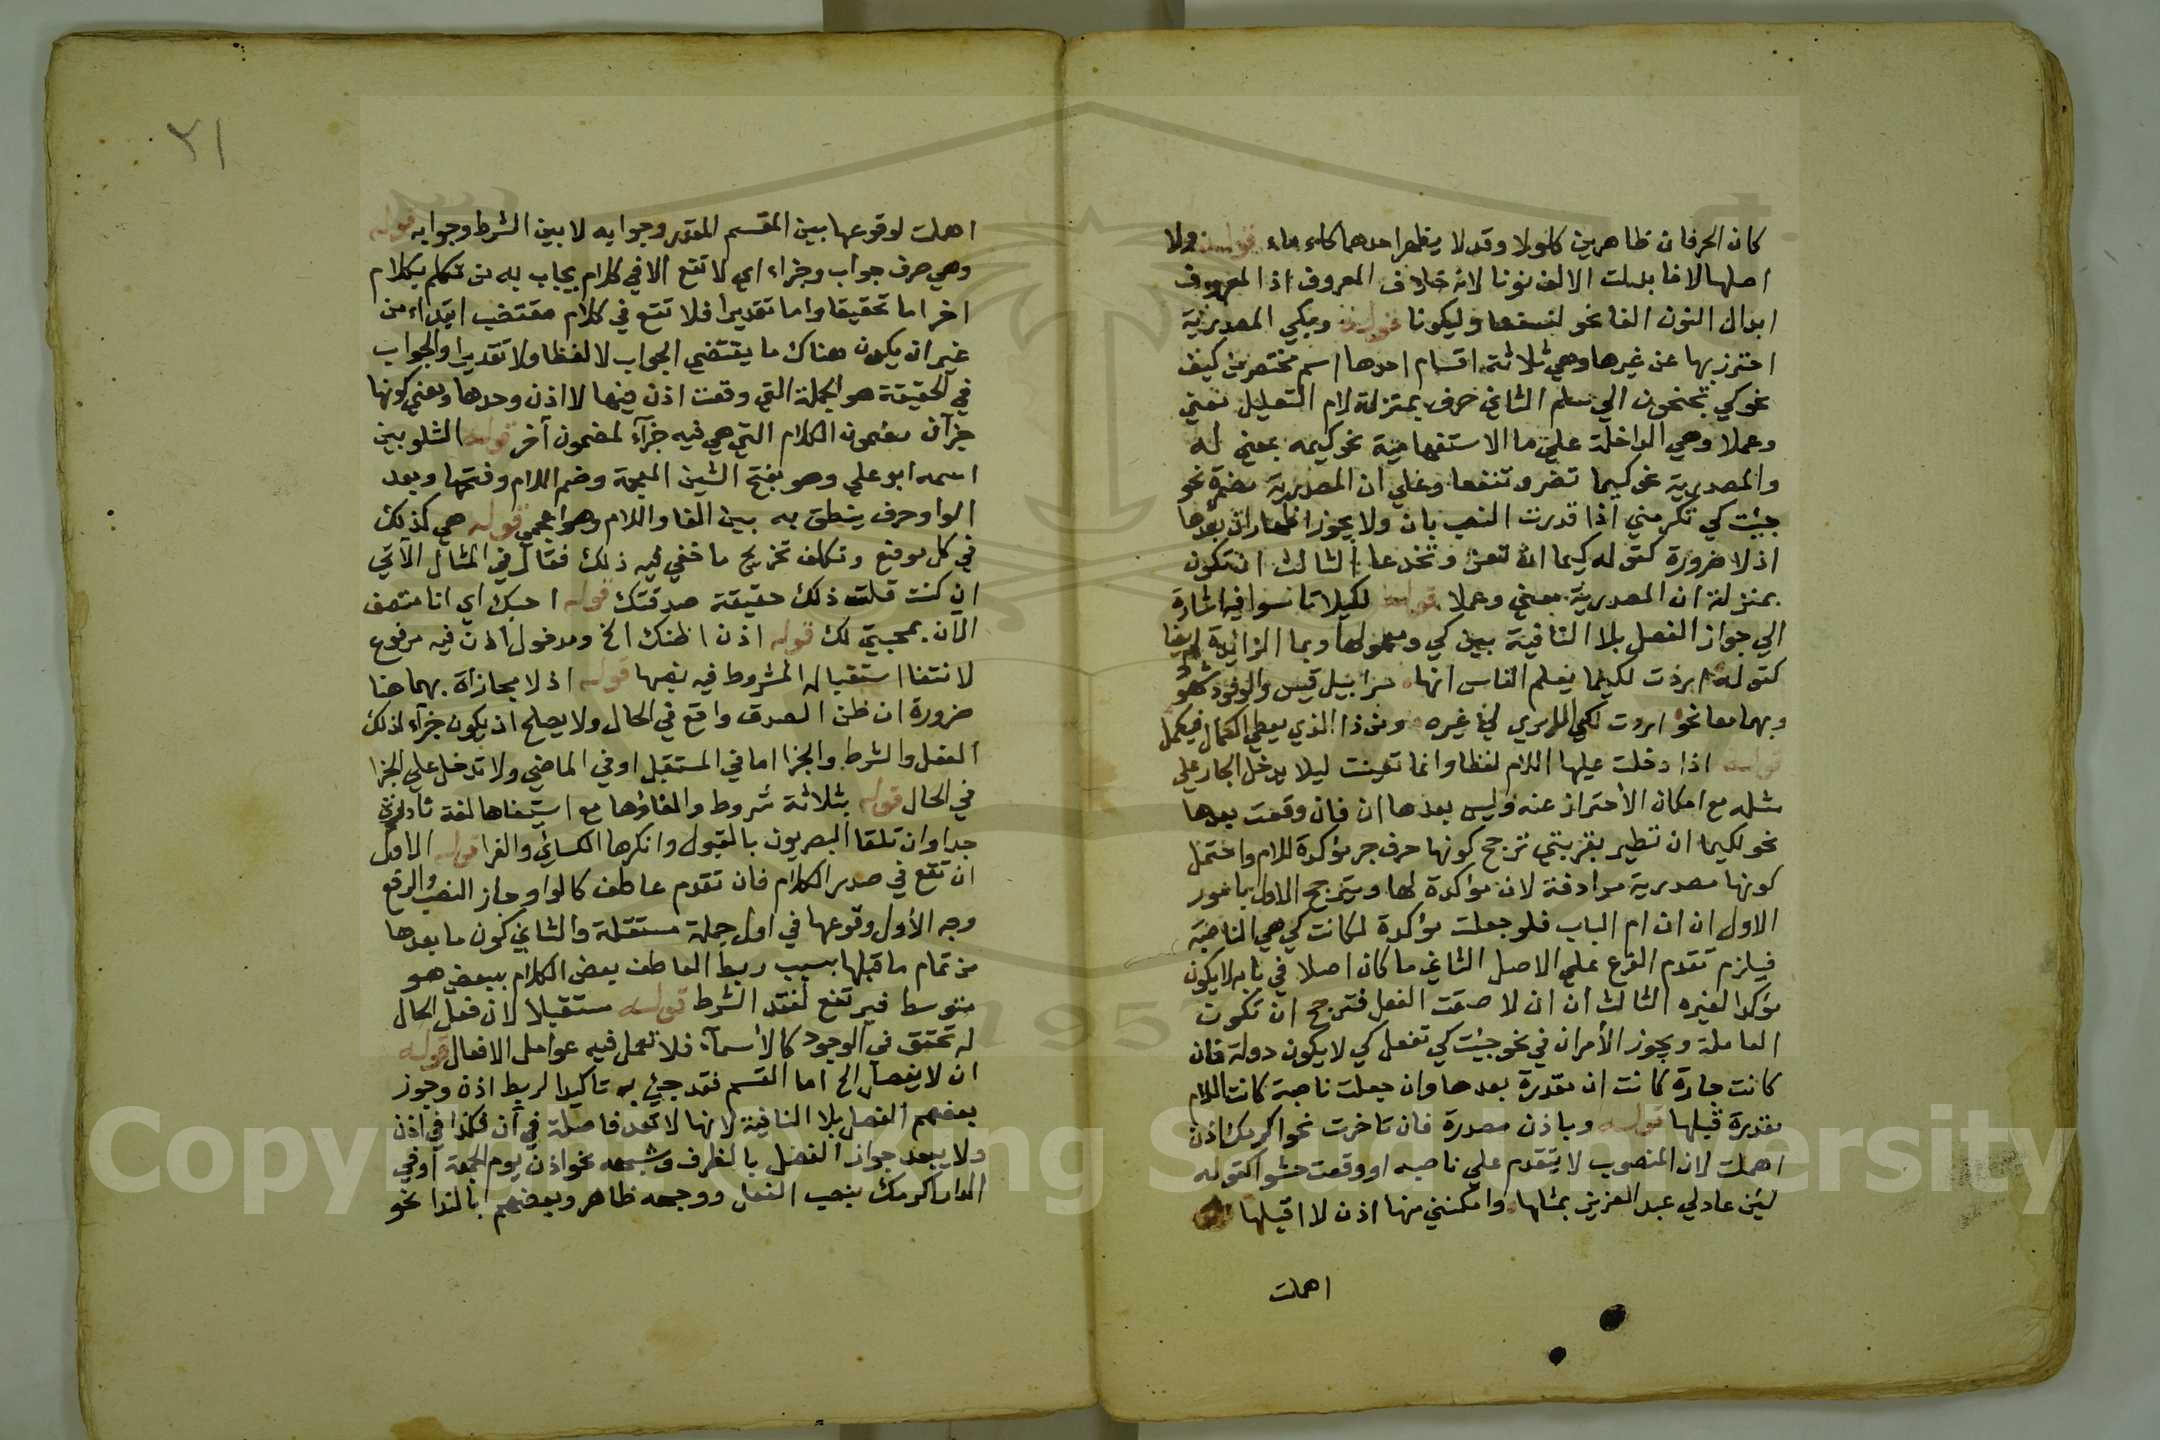 كان الحرفان ظاهرين كلولا وقد لا يظهر احدهما كاء ماء قوله ولا
اصلها لا فابدلت الالف نونا لانه خلاف المعروف اذ المعروف
ابدال النون الفا نحو لنسفعا وليكونا قوله وبكي المصدرية
احترز بها عن غيرها وهي ثلاثة اقسام احدها اسم مختصر من كيف
نحو كي تجنحون الي سلم الثاني حرف بمنزلة لام التعليل معني
وعملا وهي الداخلة علي ما الاستفهامية نحو كيمه بمعني له
والمصدرية نحو كيما تضر وتنفعا وعلي ان المصدرية مضمرة نحو
جيئت كي تكرمني اذا قدرت النصب بان ولا يجوز اظهار ان بعدها
اذ لا ضرورة كقوله كيما ان تغر وتخدعا الثالث ان تكون
بمنزلة ان المصدرية معني وعملا قوله لكيلا تاسوا فيه اشارة
الي جواز الفصل بلا النافية بين كي ومعمولها وبما الزائدة ايضا
كقوله اردت لكيما يعلم الناس انها سرابيل قيس والوفود شهود
وبهما معا نحو اردت لكي لا يري لي غيره ومن ذا الذي يعطي الكمال فيكمل
قوله اذا دخلت عليها اللام لفظا وانما تعينت ليلا يدخل الجار علي
مثله مع امكان الاحتراز عنه وليس بعدها ان فان وقعت بعدها
نحو لكيما ان تطير بقربتي ترجح كونها حرف جر مؤكدة للام واحتمل
كونها مصدرية مرادفة لان مؤكدة لها ويترجح الاول بامور
الاول ان ان ام الباب فلو جعلت مؤكدة لكانت كي هي الناصبة
فيلزم تقدم الفرع علي الاصل الثاني ما كان اصلا في بابه لا يكون
مؤكدا لغيره الثالث ان ان لاصقت الفعل فترجح ان تكون
العاملة ويجوز الأمران في نحو جيئت كي تفعل كي لا يكون دولة فان
كانت جارة كانت ان مقدرة بعدها وان جعلت ناصبة كانت اللام
مقدرة قبلها قوله وباذن مصدرة فان تاخرت نحو اكرمك اذن
اهملت لان المنصوب لا يتقدم علي ناصبه او وقعت حشوا كقوله
لئن عاد لي عبد العزيز بمثلها وامكنني منها اذن لا اقيلها
اهملت
٢١
اهملت لوقوعها بين القسم المقدر وجوابه لا بين الشرط وجوابه قوله
وهي حرف جواب وجزاء اي لا تقع الا في كلام يجاب به من تكلم بكلام
اخر اما تحقيقا واما تقديرا فلا تقع في كلام مقتضب ابتداء من
غير ان يكون هناك ما يقتضي الجواب لا لفظا ولا تقديرا والجواب
في الحقيقة هو الجملة التي وقعت اذن فيها لا اذن وحدها ومعني كونها
جزآ ان مضمون الكلام التي هي فيه جزآء لمضمون آخر قوله الشلوبين
اسمه ابو علي وهو بفتح الشين المعجمة وضم اللام وفتحها وبعد
الواو حرف ينطق به بين الفا واللام وهو اعجمي قوله هي كذلك
في كل موضع وتكلف تخريج ما خفي فيه ذلك فقال في المثال الآتي
ان كنت قلت ذلك حقيقة صدقتك قوله احبك اي انا متصف
الآن بمحبتي لك قوله اذن اظنك الخ ومدخول اذن فيه مرفوع
لانتفا استقباله المشروط فيه نصبها قوله اذ لا مجازاة بهما هنا
ضرورة ان ظن الصدق واقع في الحال ولا يصلح ان يكون جزآء لذلك
الفعل والشرط والجزا اما في المستقبل او في الماضي ولا تدخل علي الجزا
في الحال قوله بثلاثة شروط والغاؤها مع استيفاها لغة نادرة
جدا وان تلقا البصريون بالقبول وانكرها الكسائي والفرا قوله الاول
ان تقع في صدر الكلام فان تقدم عاطف كالواو جاز النصب والرفع
وجه الأول وقوعها في اول جملة مستقلة والثاني كون ما بعدها
من تمام ما قبلها بسبب ربط العاطف بعض الكلام ببعض هو
متوسط فيرتفع لفقد الشرط قوله مستقبلا لان فعل الحال
له تحقق في الوجود كالأسمآء فلا تعمل فيه عوامل الافعال قوله
ان لا يفصل الخ اما القسم فقد جيئ به تاكيدا لربط اذن وجوز
بعضهم الفصل بلا النافية لانها لا تعد فاصلة في أن فكذا في اذن
ولا يبعد جواز الفصل بالظرف وشبهه نحو اذن يوم الجمعة أو في
الدار اكرمك بنصب الفعل ووجهه ظاهر وبعضهم بالندا نحو
Copyright © King Saud University
1957